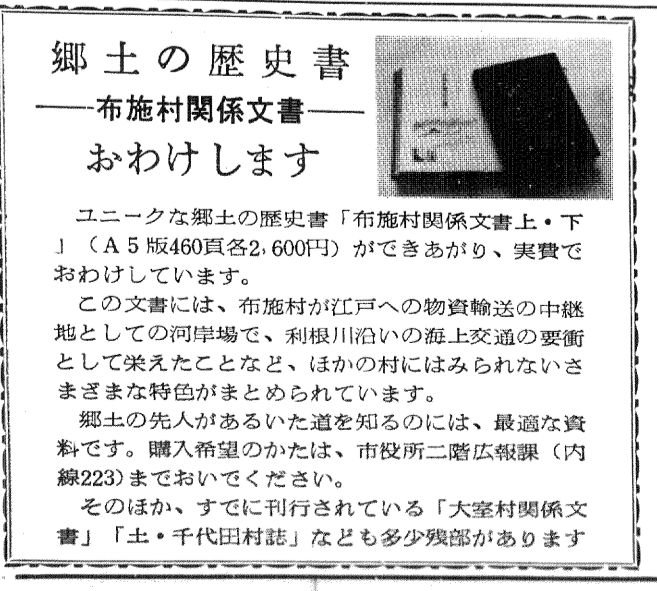 郷土の歴史書
――布施村関係文書――
おわけします
ユニークな郷土の歴史書「布施村関係文書上・下
」（Ａ５版460頁各2,600円）ができあがり、実費で
おわけしています。
この文書には、布施村が江戸への物資輸送の中継
地としての河岸場で、利根川沿いの海上交通の要衝
として栄えたことなど、ほかの村にはみられないさ
まざまな特色がまとめられています。
郷土の先人があるいた道を知るのには、最適な資
料です。購入希望のかたは、市役所二階広報課（内
線223）までおいでください。
そのほか、すでに刊行されている「大室村関係文
書」「土・千代田村誌」なども多少残部があります